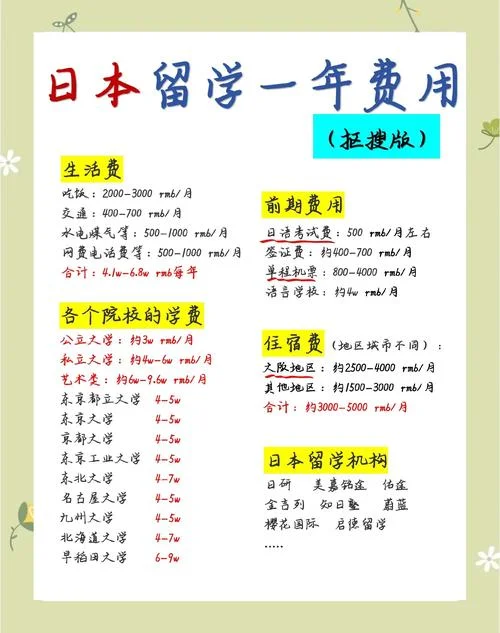 日本留学一年费用
（抠搜版）
生活费
吃饭：2000-3000 rmb/月
交通：400-700 rmb/月
水电煤气等：500-1000 rmb/月
网费电话费等：500-1000 rmb/月
合计：4.1w-6.8w rmb每年
各个院校的学费
公立大学：约3w rmb/月
私立大学：约4w-6w rmb/月
艺术类：约6w-9.6w rmb/月
东京都立大学 4-5w
东京大学 4-5w
京都大学 4-5w
东京工业大学 4-5w
东北大学 4-7w
名古屋大学 4-5w
九州大学 4-5w
北海道大学 4-7w
早稻田大学 6-9w
前期费用
日语考试费：500 rmb/月左右
签证费：约400-700 rmb/月
单程机票：800-4000 rmb/月
语言学校：约4w rmb/月
住宿费（地区城市不同）：
大阪地区：约2500-4000 rmb/月
其他地区：约1500-3000 rmb/月
合计：约3000-5000 rmb/月
日本留学机构
日研 美嘉铭途 佑途
金吉列 知日塾 蔚蓝
樱花国际 启德留学
.....